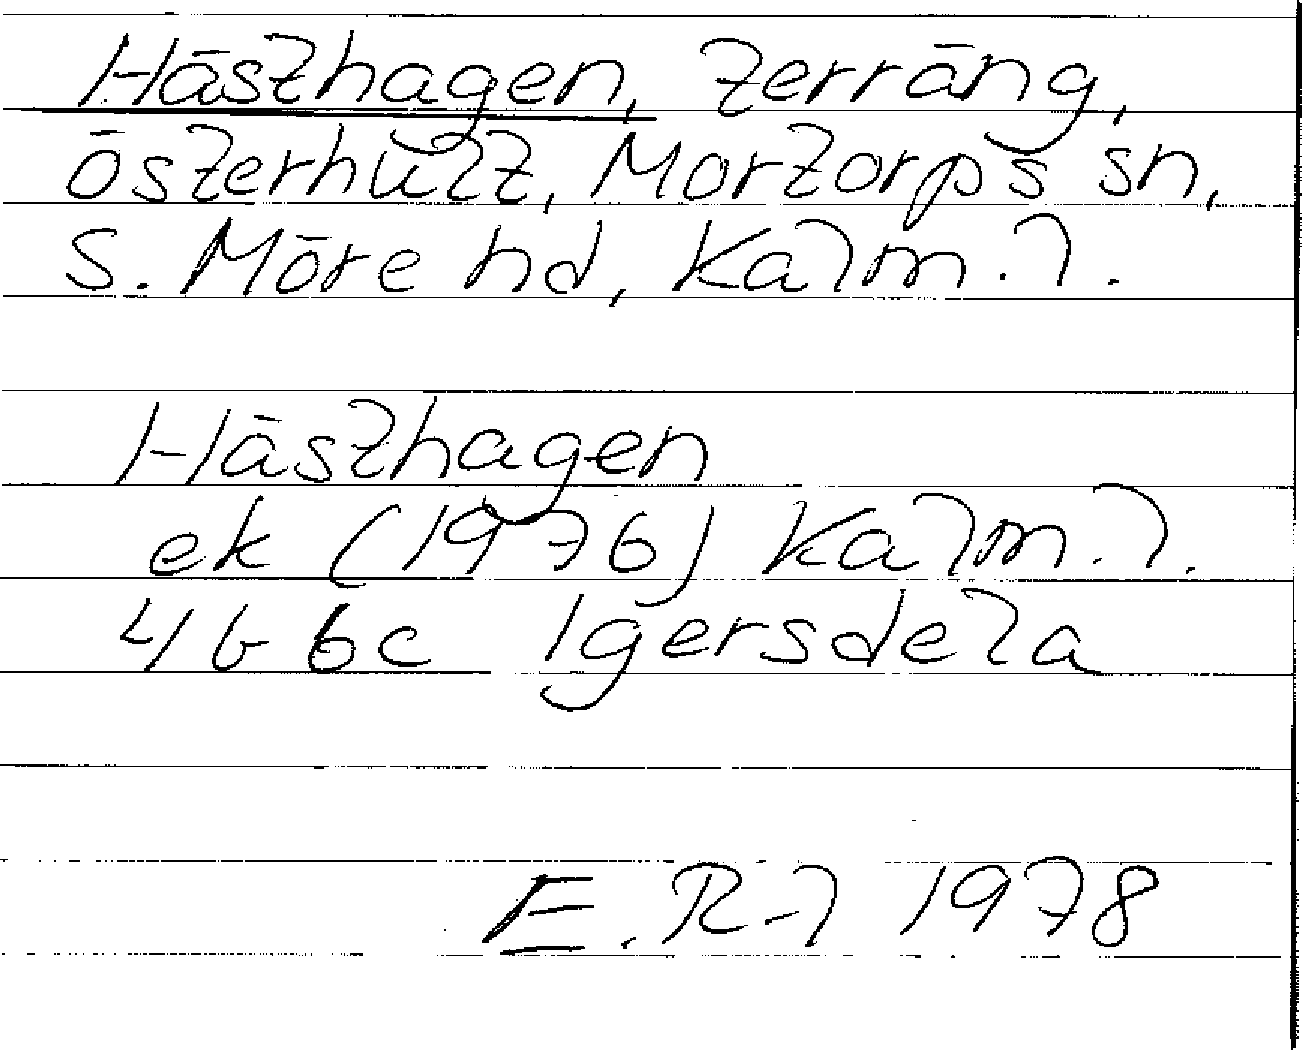 Hästhagen, terräng,
Österhult, Mortorps sn,
S. Möre hd, Kalm. l.
Hästhagen
ek (1976) Kalm. l.
4G 6c Igersdela
E. R-l 1978